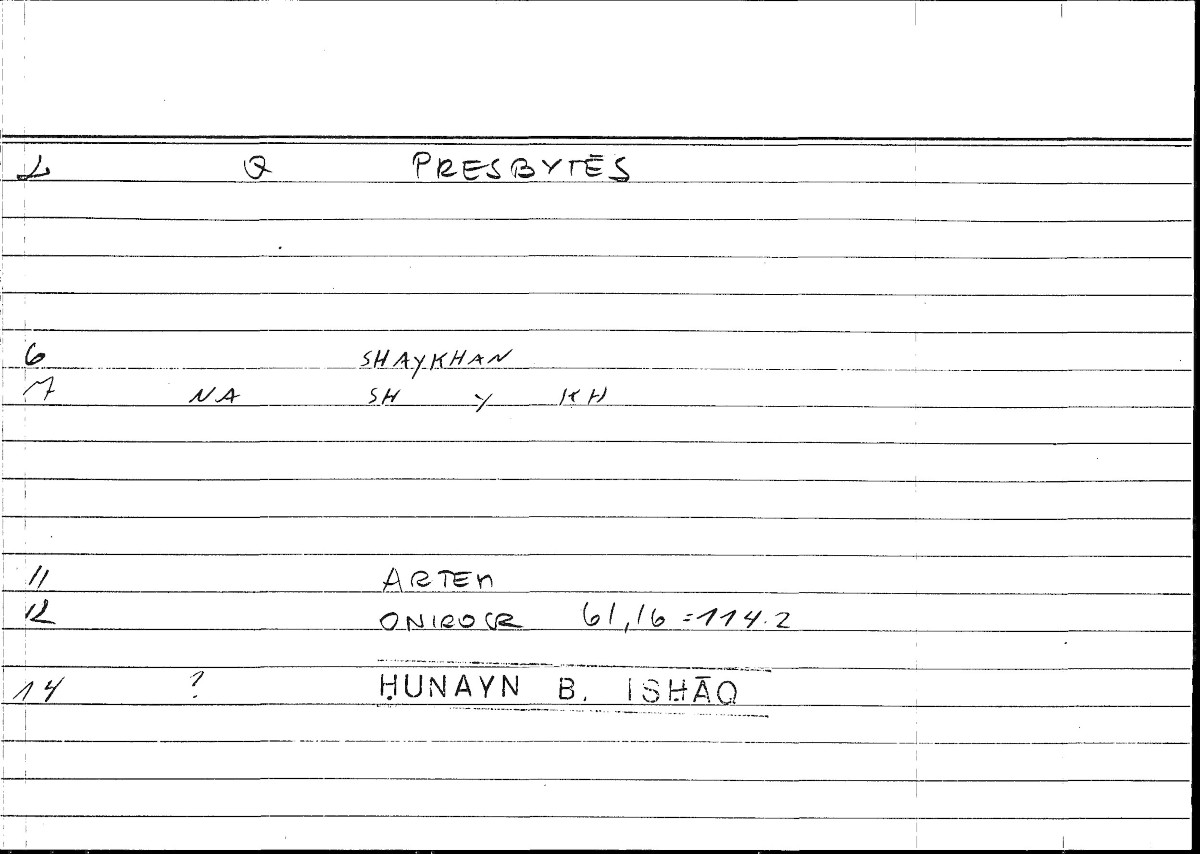 1 Q PRESBYTĒS
6 SHAYKHAN
7 NA SH Y KH
11 ARTEM
12 ONIROCR 61,16 = 114.2
14 ? ḤUNAYN B. ISḤĀQ